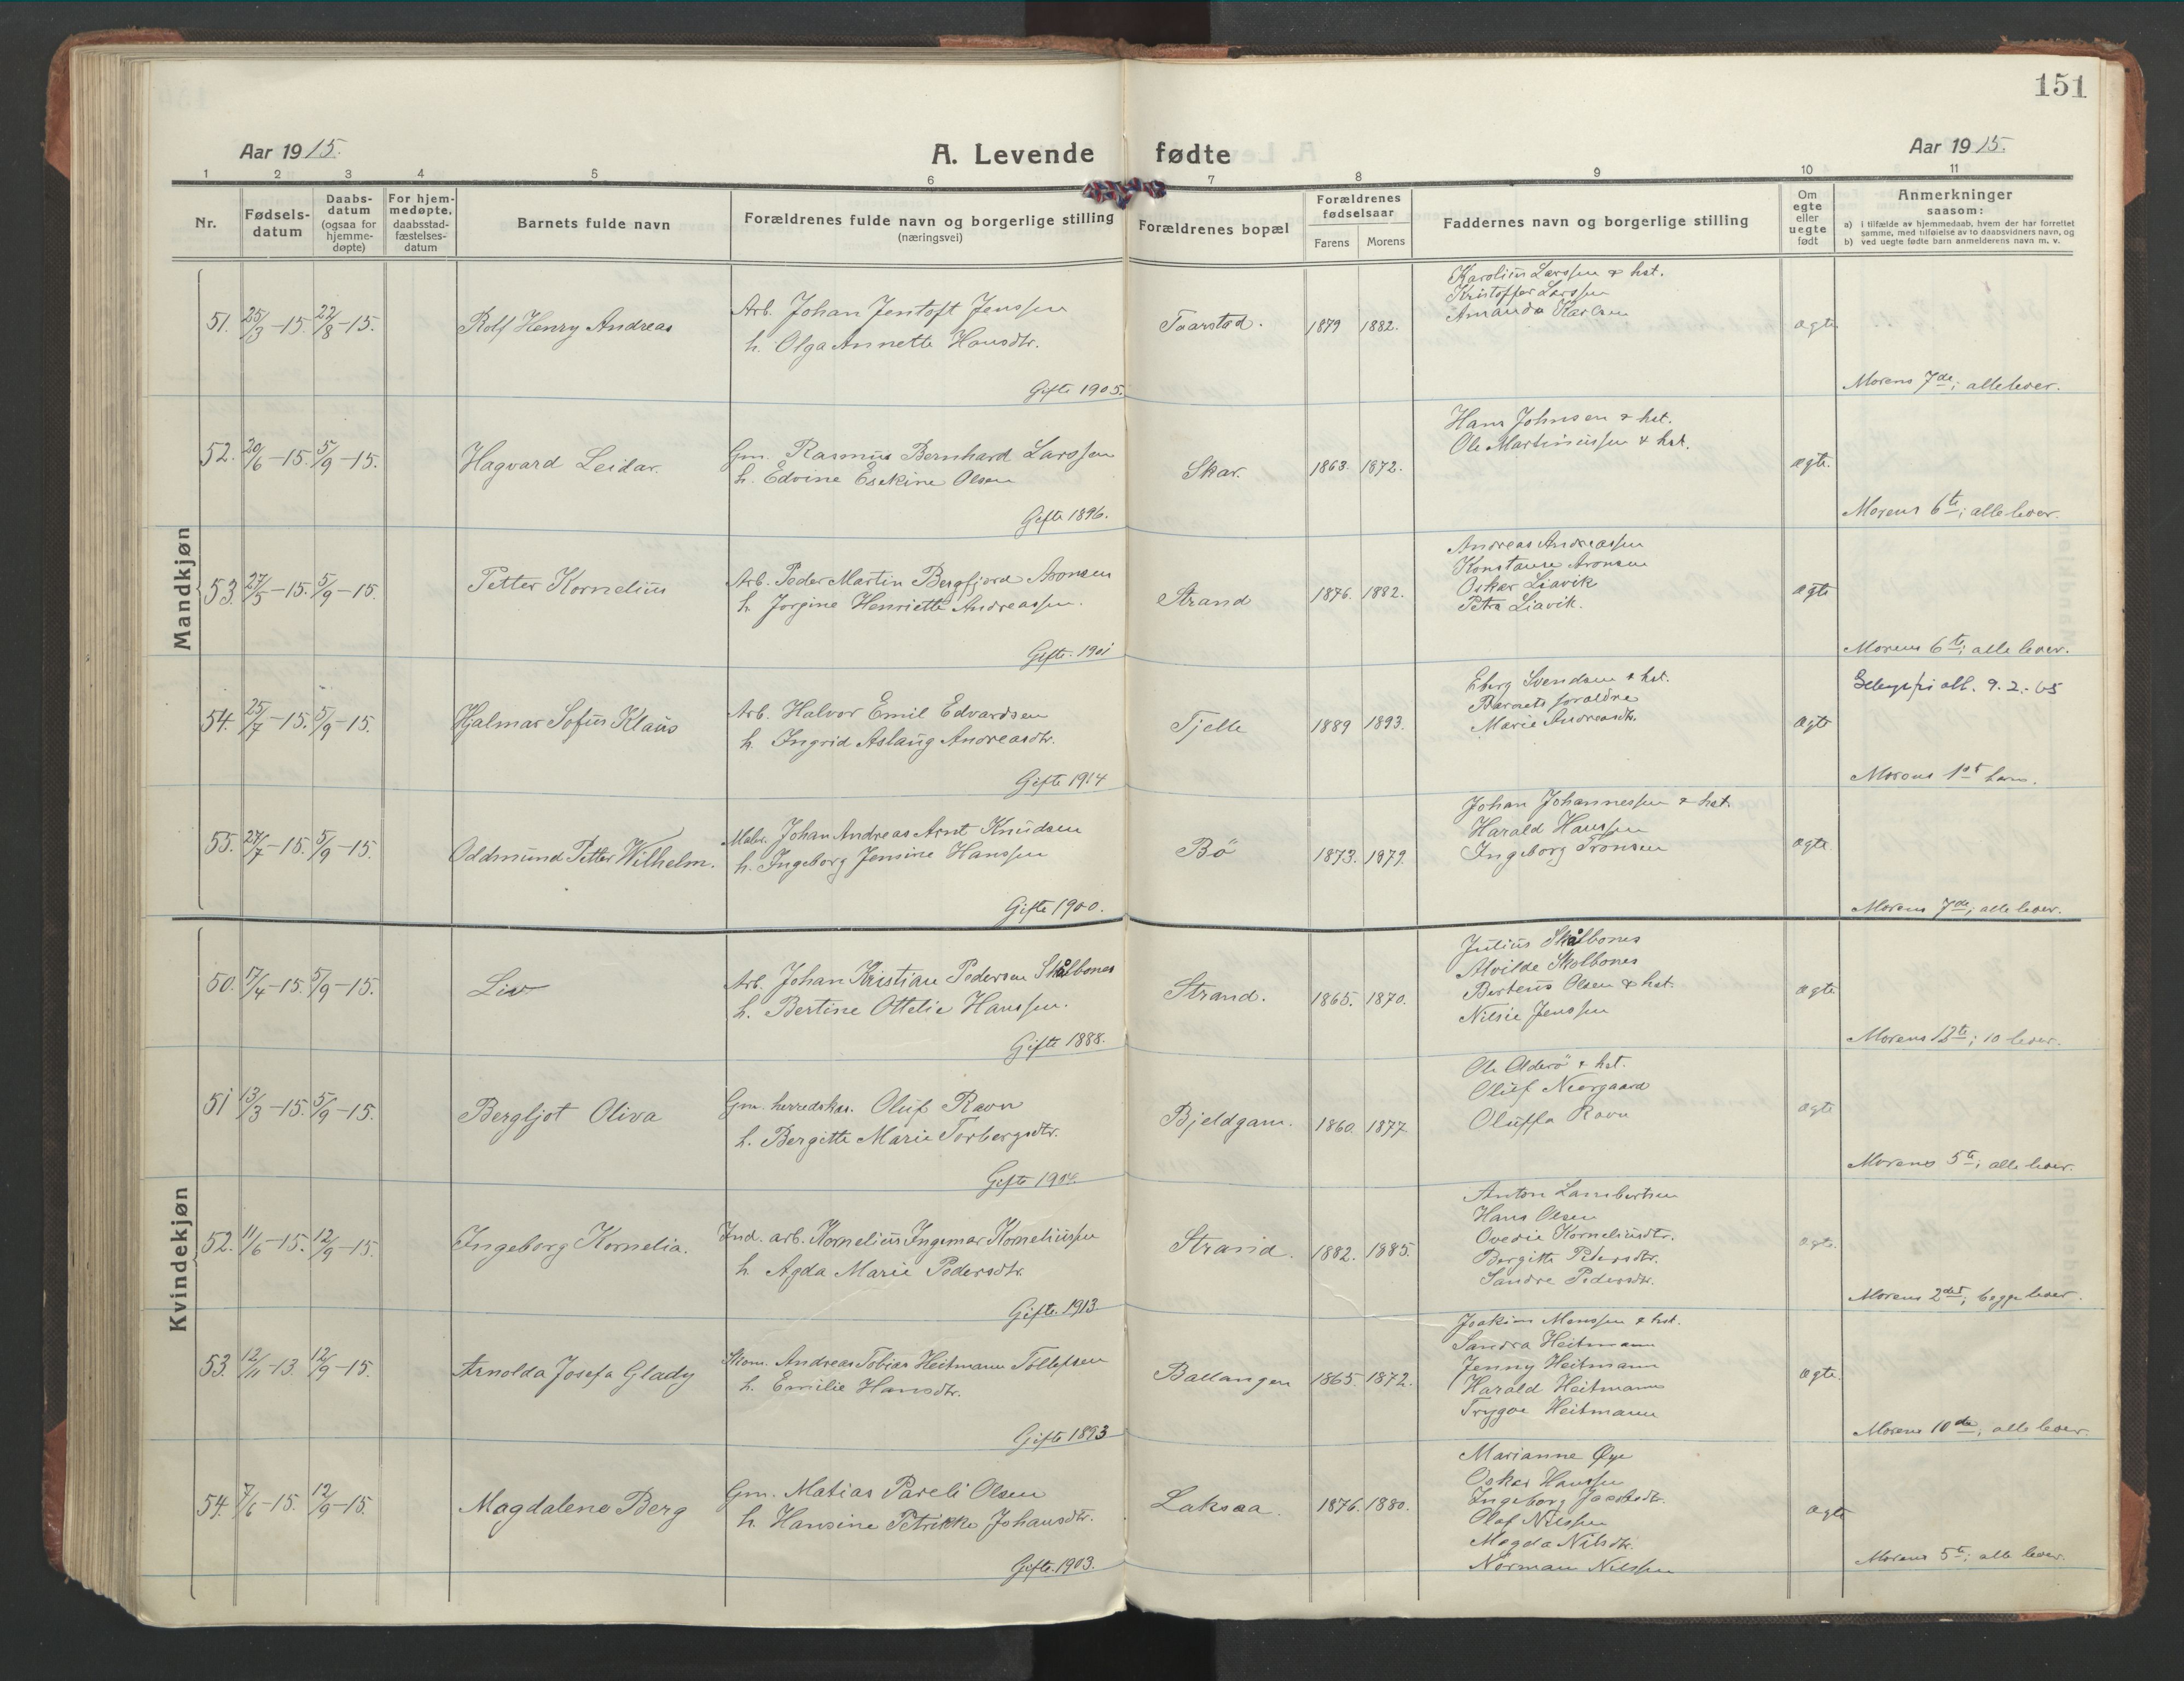 151
Aar 1915.
A. Levende fødte
Aar 1915.
1 2 3 4 5 6 7 8 9 10 11
Nr.
Fødselsdatum
Daabsdatum (ogsaa for hjemmedøpte)
For hjemmedøpte, daabsstadfæstelsesdatum
Barnets fulde navn
Forældrenes fulde navn og borgerlige stilling (næringsvei)
Forældrenes bopæl
Forældrenes fødselsaar
Farens Morens
Faddernes navn og borgerlige stilling
Om egte eller uegte født
Anmerkninger saasom:
a) i tilfælde av hjemmedaab, hvem der har forrettet samme, med tilføielse av to daabsvidners navn, og
b) ved uegte fødte barn anmelderens navn m. v.
Mandkjøn
51. 25/3-15. 22/8-15. Rolf Henry Andreas
Arb. Johan Jentoft Jenssen
h. Olga Annette Hansdtr.
Gifte 1905.
Taarstad. 1879 1882.
Karolius Larssen & hst.
Kristoffer Larssen
Amanda Karlsen
ægte
Morens 7de; alle lever.
52. 20/6-15. 5/9-15. Hagvard Leidar.
Gm. Rasmus Bernhard Larssen
h. Edvine Esekine Olsen
Gifte 1896.
Skar. 1863. 1872.
Hans Johnsen & hst.
Ole Martinussen & hst.
ægte.
Morens 6te; alle lever.
53. 27/5-15. 5/9-15. Petter Kornelius
Arb. Peder Martin Bergfjord Aronsen
h. Jorgine Henriette Andreassen.
Gifte. 1901
Strand 1876. 1882.
Andreas Andreassen
Konstanse Aronsen
Oskar Liavik
Petra Liavik.
ægte
Morens 6te; alle lever.
54. 25/7-15. 5/9-15. Hjalmar Sofus Klaus
Arb. Halvor Emil Edvardsen
h. Ingrid Aslaug Andreasdtr.
Gifte 1914
Tjelle 1889 1893.
Eberg Svendsen & hst.
Barnets forældre
Marie Andreasdtr.
ægte
9.2.-65
Morens 1ste barn.
55. 27/7-15. 5/9-15. Oddmund Petter Wilhelm.
Maler. Johan Andreas Arnt Knudsen
h. Ingeborg Jensine Hanssen
Gifte 1900.
Bö 1873. 1879.
Johan Johannessen & hst.
Harald Hanssen
Ingeborg Tronsen
ægte
Morens 7de; alle lever.
Kvindekjøn
50. 17/4-15. 5/9-15. Liv
Arb. Johan Kristian Pedersen Skålbones
h. Bertine Ottelie Hanssen.
Gifte 1888.
Strand. 1865. 1870.
Julius Skålbones
Alvilde Skolbones
Berteus Olsen & hst.
Nilsie Jenssen
ægte
Morens 12te; 10 lever.
51 13/3-15. 5/9-15. Bergljot Oliva
Gm. herredskas. Oluf Ravn
h. Bergitte Marie Torbergsdtr.
Gifte 1904.
Bjeldgam. 1860. 1877
Ole Alderö & hst.
Oluf Neergaard
Oluffa Ravn
ægte
Morens 5te; alle lever.
52. 11/6-15. 12/9-15. Ingeborg Kornelia.
Ind. arb. Kornelius Ingemar Korneliussen
h. Agda Marie Pedersdtr.
Gifte. 1913
Strand. 1882. 1885.
Anton Lambertsen
Hans Olsen
Ovedie Korneliusdtr.
Bergitte Pedersdtr.
Sandre Pedersdtr.
ægte.
Morens 2det; begge lever.
53. 12/11-13. 12/9-15. Arnolda Josefa Glady
Skom. Andreas Tobias Heitmann Tollefsen
h. Emilie Hansdtr.
Gifte 1893
Ballangen 1865. 1872.
Joakim Monssen & hst.
Sandra Heitmann
Jenny Heitmann
Harald Heitmann
Trygve Heitmann
ægte.
Morens 10de; alle lever.
54. 7/6-15. 12/9-15. Magdalene Berg
Gm. Matias Pareli Olsen
h. Hansine Petrikke Johansdtr.
Gifte. 1903.
Laksaa. 1876. 1880.
Marianne Øye
Oskar Hanssen
Ingeborg Jacobsdtr.
Olaf Nilssen
Magda Nilsdtr.
Norman Nilssen
ægte
Morens 5te; alle lever.